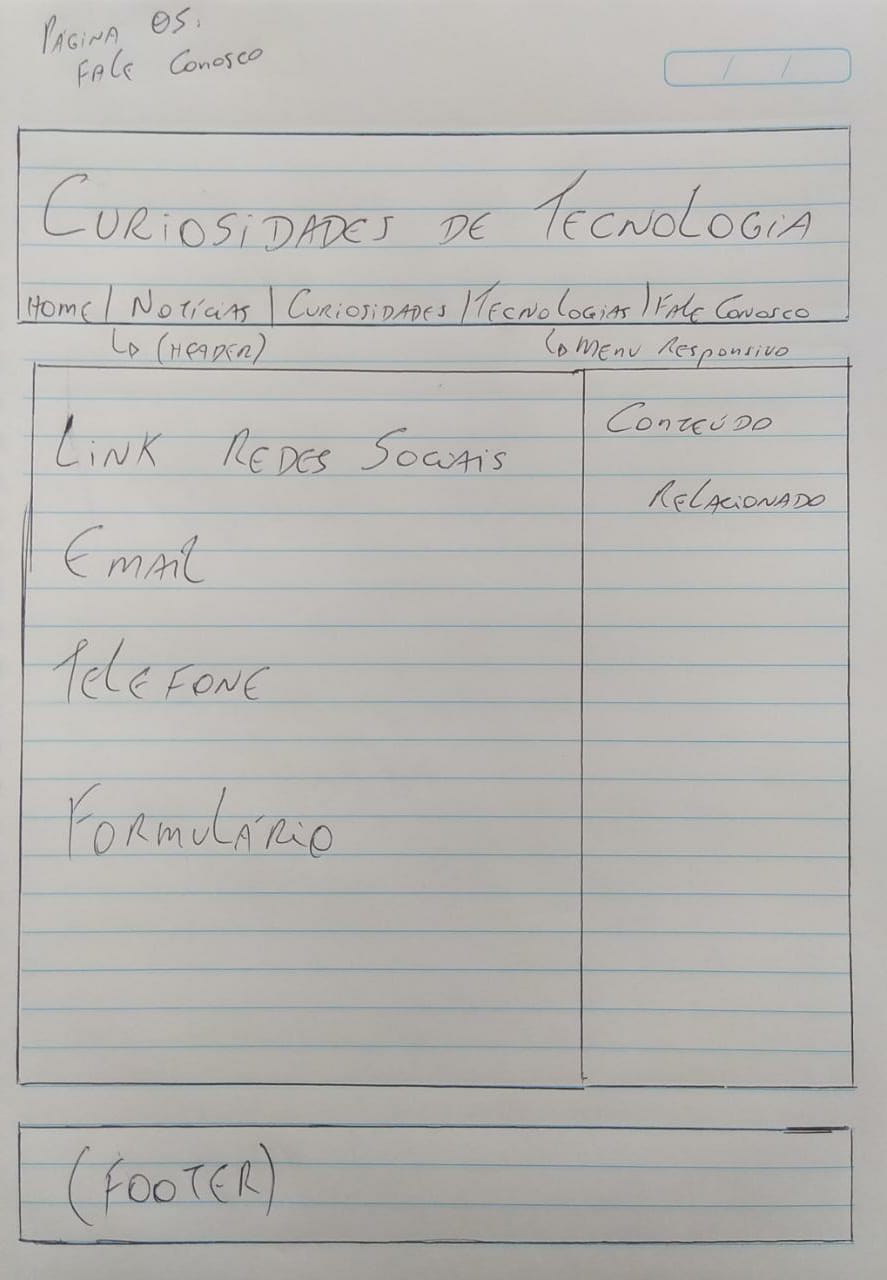 PÁGINA 05.
FALE CONOSCO
/ /
CURIOSIDADES DE TECNOLOGIA
HOME | NOTÍCIAS | CURIOSIDADES | TECNOLOGIAS | FALE CONOSCO
↳ (HEADER) ↳ MENU RESPONSIVO
LINK REDES SOCIAIS
EMAIL
TELEFONE
FORMULÁRIO
CONTEÚDO
RELACIONADO
(FOOTER)